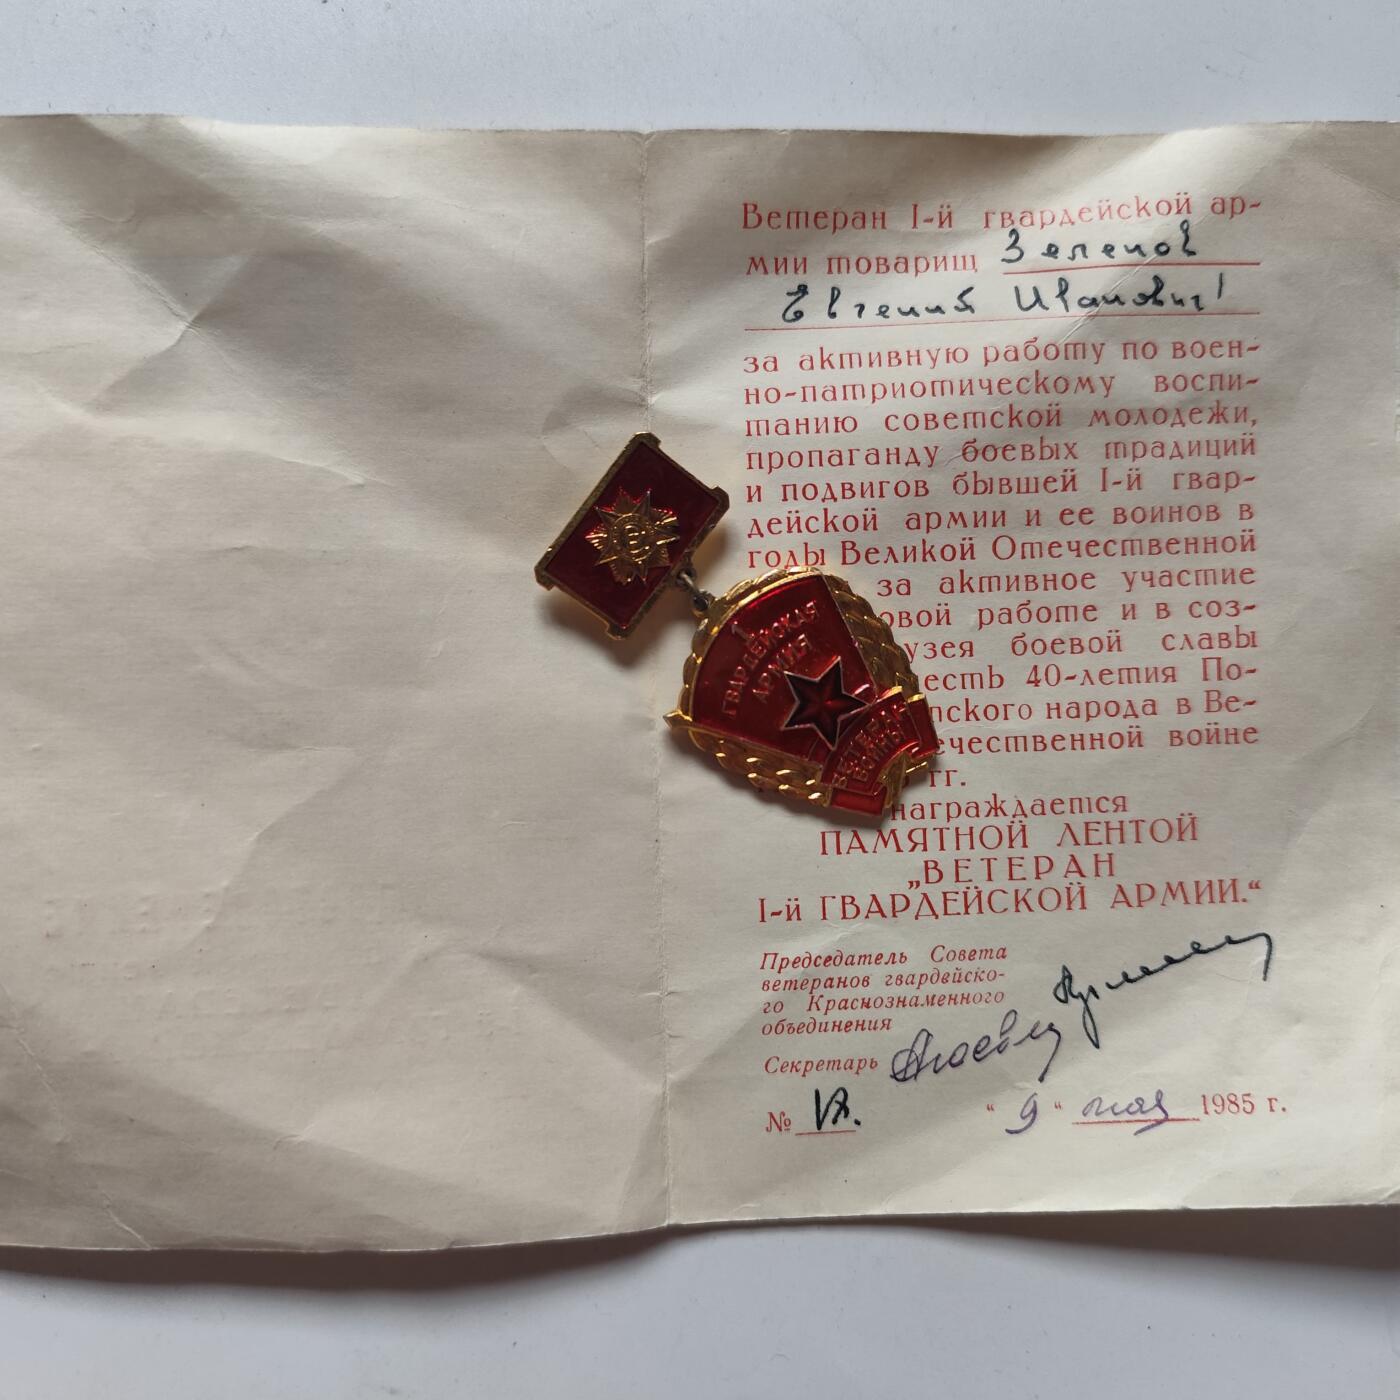 Ветеран I-й гвардейской ар-
мии товарищ Зеленов
Евгений Иванович
за активную работу по воен-
но-патриотическому воспи-
танию советской молодежи,
пропаганду боевых традиций
и подвигов бывшей I-й гвар-
дейской армии и ее воинов в
годы Великой Отечественной
за активное участие
овой работе и в соз-
узея боевой славы
есть 40-летия По-
тского народа в Ве-
ечественной войне
гг.
награждается
ПАМЯТНОЙ ЛЕНТОЙ
„ВЕТЕРАН
I-й ГВАРДЕЙСКОЙ АРМИИ.“
Председатель Совета
ветеранов гвардейско-
го Краснознаменного
объединения
Секретарь
№
“ 9 “ мая 1985 г.
1
ГВАРДЕЙСКАЯ
АРМИЯ
ВЕТЕРАН
ВОЙНЫ